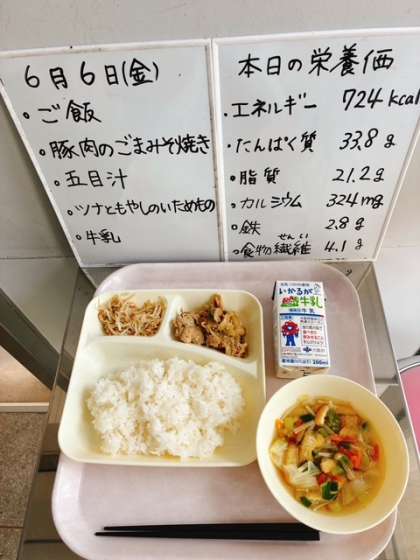 6月6日(金)
。ご飯
。豚肉のごまみそ焼き
。五目汁
。ツナともやしのいためもの
。牛乳
本日の栄養価
・エネルギー 724 kcal
・たんぱく質 33.8 g
・脂質 21.2 g
・カルシウム 324 mg
・鉄 2.8 g
・食物繊維 4.1 g
せんい
いかるが
牛乳